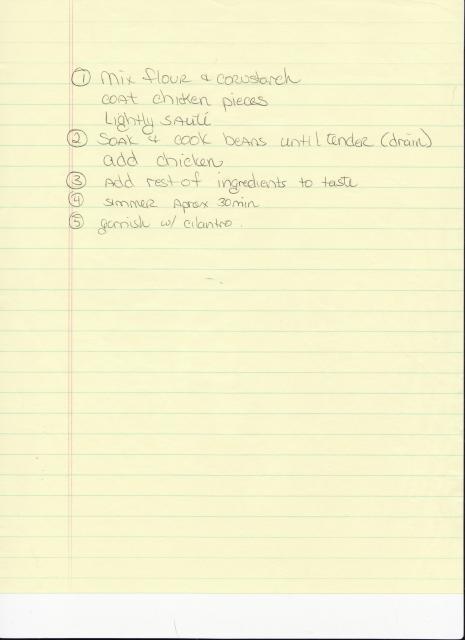 ① Mix flour & cornstarch
coat chicken pieces
Lightly sauté
② Soak & cook beans until tender (drain)
add chicken
③ Add rest of ingredients to taste
④ simmer Aprox 30 min
⑤ garnish w/ cilantro.